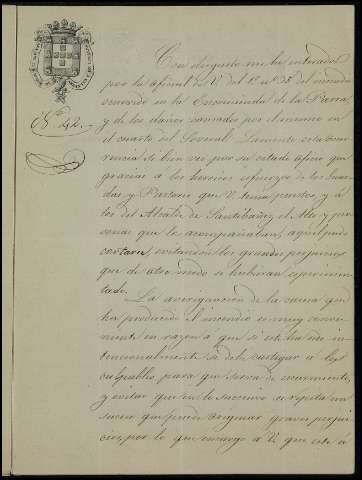 Nº 42.
Con disgusto me he enterado
por la oficial de V. del 1º nº 35 del incendio
ocurrido en la Encomienda de la Parra
y de los daños causados por el mismo en
el cuarto del Lorenal. Lamento esta ocur-
rencia si bien veo por su citado oficio que
gracias a los heroicos esfuerzos de los Guar-
das y Personas que V. tenia puestos, y á
los del Alcalde de Santibañez el Alto y per-
sonas que le acompañaban, aquel pudo
cortarse, evitandose los grandes perjuicios
que de otro modo se hubieran esperimen-
tado.
La averiguacion de la causa que
ha producido el incendio es muy conve-
niente en razon á que si este ha sido in-
tencionalmente se debe castigar a los
culpables, para que sirva de escarmiento,
y evitar que en lo succesivo se repita un
suceso que puede originar graves perjui-
cios, por lo que encargo a V. que este á